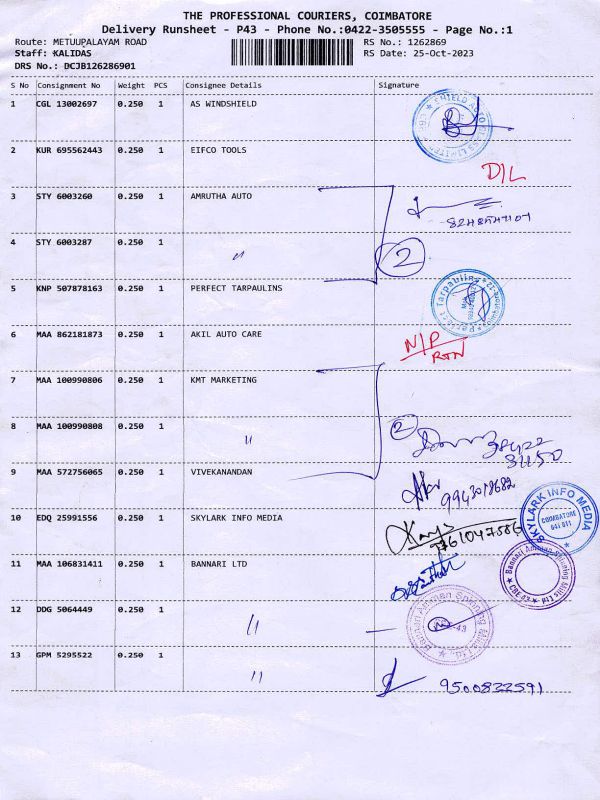 THE PROFESSIONAL COURIERS, COIMBATORE
Delivery Runsheet - P43 - Phone No.:0422-3505555 - Page No.:1
Route: METUUPALAYAM ROAD RS No.: 1262869
Staff: KALIDAS RS Date: 25-Oct-2023
DRS No.: DCJB126286901
S No Consignment No Weight PCS Consignee Details Signature
1 CGL 13002697 0.250 1 AS WINDSHIELD
2 KUR 695562443 0.250 1 EIFCO TOOLS
D/L
3 STY 6003260 0.250 1 AMRUTHA AUTO
4 STY 6003287 0.250 1 〃 2
5 KNP 507878163 0.250 1 PERFECT TARPAULINS
Perfect Tarpaulins
6 MAA 862181873 0.250 1 AKIL AUTO CARE N/P
RTN
7 MAA 100990806 0.250 1 KMT MARKETING
8 MAA 100990808 0.250 1 〃 2
9 MAA 572756065 0.250 1 VIVEKANANDAN
10 EDQ 25991556 0.250 1 SKYLARK INFO MEDIA
SKYLARK INFO MEDIA
COIMBATORE
641 011
11 MAA 106831411 0.250 1 BANNARI LTD
Bannari Amman Spinning Mills Ltd
12 DDG 5064449 0.250 1 〃
Bannari Amman Spinning Mills Ltd.
13 GPM 5295522 0.250 1 〃 9500822591